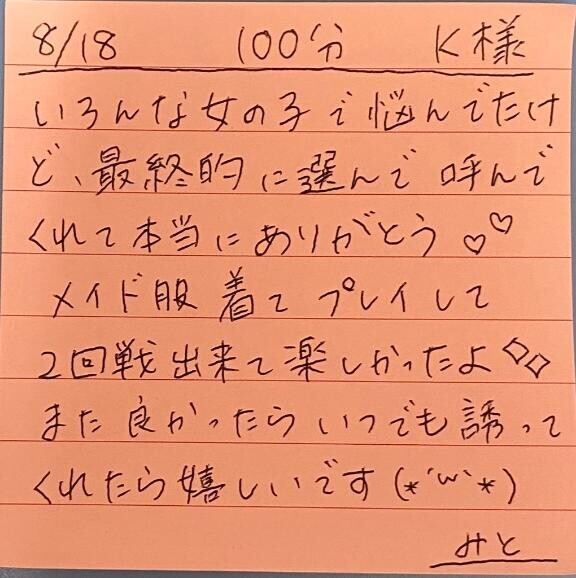 8/18 100分 K様
いろんな女の子で悩んでたけ
ど、最終的に選んで呼んで
くれて本当にありがとう♡♡
メイド服着てプレイして
2回戦出来て楽しかったよ◇◇
また良かったらいつでも誘って
くれたら嬉しいです(*´ω`*)
みと